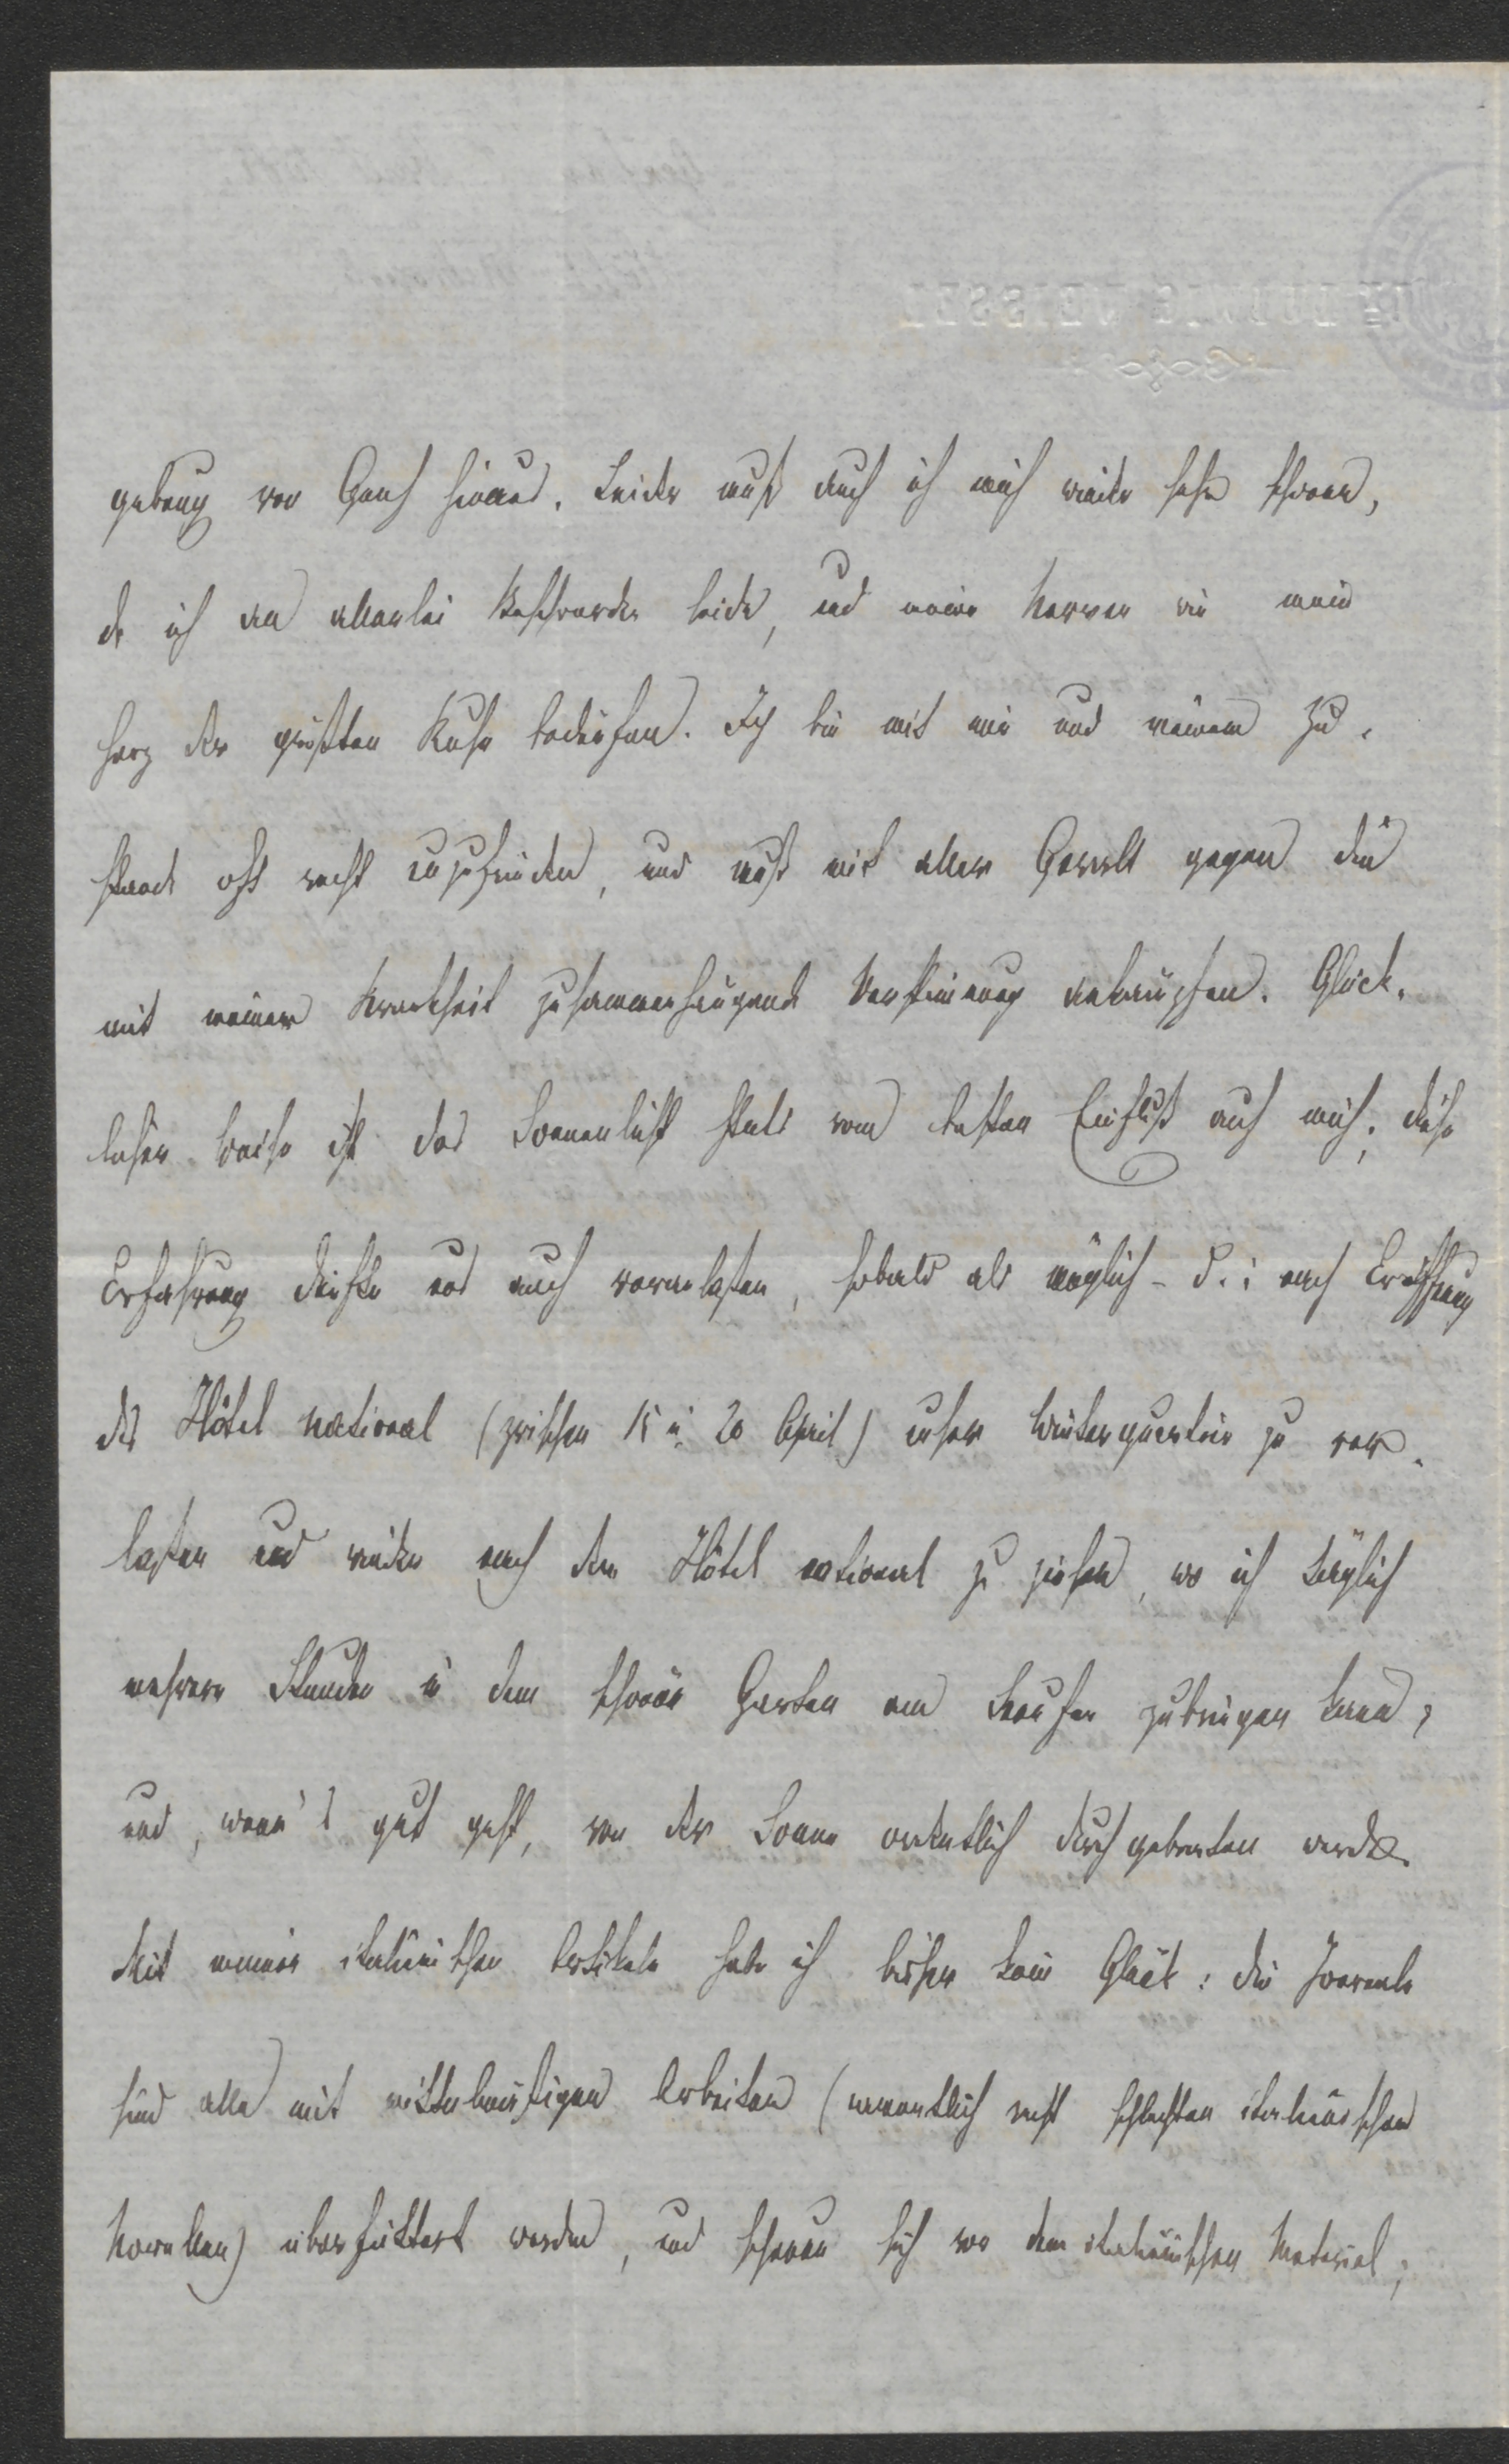 gebung von Genf hinaus. Leider muß auch ich mich wieder sehr schonen,
da ich an allerlei Beschwerden leide, und meine Nerven wie mein
Herz der größten Ruhe bedürfen. Ich bin mit mir und meinem Zu-
stande oft recht unzufrieden, und muß mit aller Gewalt gegen die
mit meiner Krankheit zusammenhängende Verstimmung ankämpfen. Glück-
licher Weise ist das Sonnenlicht stets vom besten Einfluß auf mich; diese
Erfahrung dürfte uns auch veranlassen, sobald als möglich - d. i. nach Eröffnung
des Hôtel national (zwischen 15 u. 20 April) unser Winterquartier zu ver-
lassen und wieder nach dem Hôtel national zu ziehen, wo ich täglich
mehrere Stunden in dem schönen Garten am Seeufer zubringen kann,
und, wenn's gut geht, von der Sonne ordentlich durchgebraten werde.
Mit meinen italienischen Artikeln habe ich bisher kein Glück: die Journale
sind alle mit mittelmäßigen Arbeiten (namentlich recht schlechten italienischen
Novellen) überfüttert worden, und scheuen sich vor dem italienischen Material;